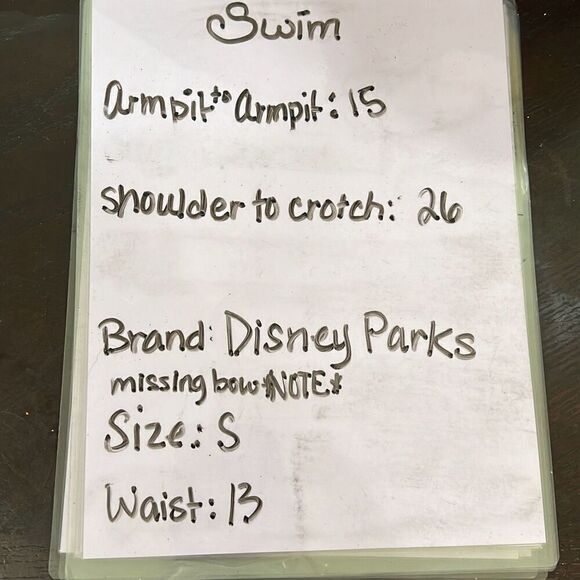 Swim
armpit to armpit: 15
shoulder to crotch: 26
Brand: Disney Parks
missing bow *NOTE*
Size: S
Waist: 13